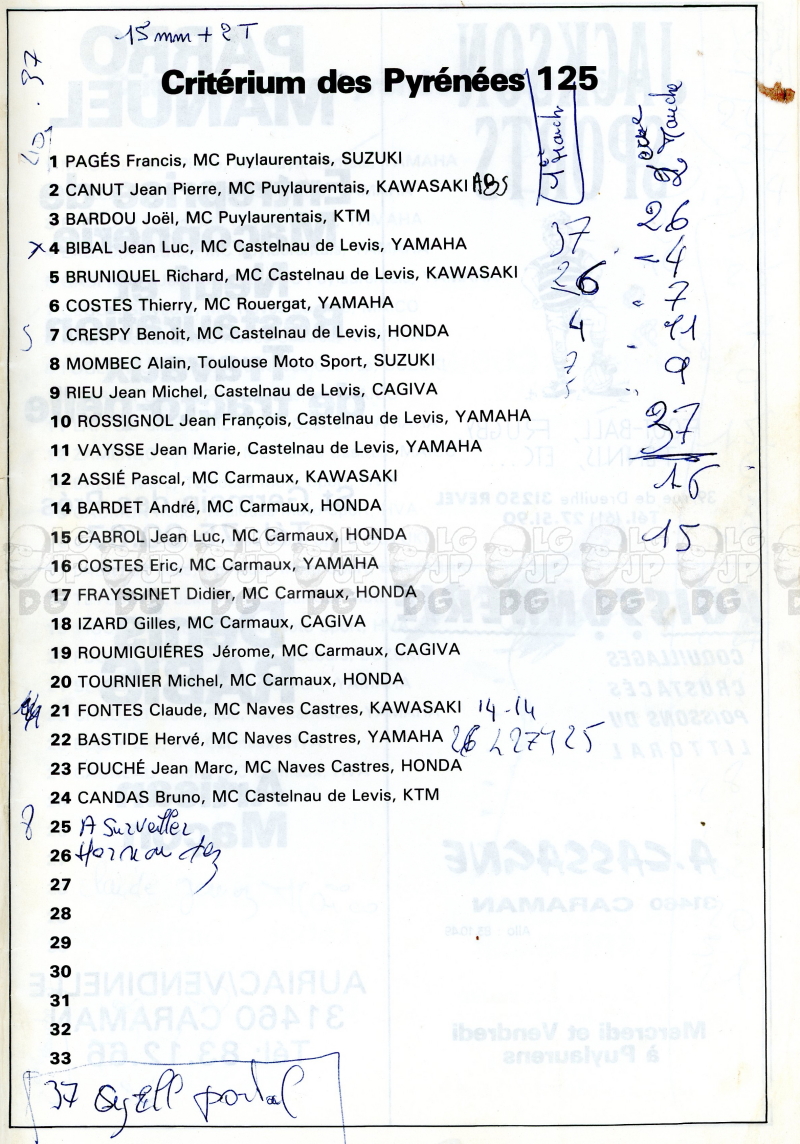 15 mm + 2T
37
Critérium des Pyrénées 125
1 Manch
2 Manche
1 PAGÉS Francis, MC Puylaurentais, SUZUKI
2 CANUT Jean Pierre, MC Puylaurentais, KAWASAKI ABS
3 BARDOU Joël, MC Puylaurentais, KTM 26
x 4 BIBAL Jean Luc, MC Castelnau de Levis, YAMAHA 37 4
5 BRUNIQUEL Richard, MC Castelnau de Levis, KAWASAKI 26
6 COSTES Thierry, MC Rouergat, YAMAHA 7
5 7 CRESPY Benoit, MC Castelnau de Levis, HONDA 4 11
8 MOMBEC Alain, Toulouse Moto Sport, SUZUKI 7 9
9 RIEU Jean Michel, Castelnau de Levis, CAGIVA 5
10 ROSSIGNOL Jean François, Castelnau de Levis, YAMAHA 37
11 VAYSSE Jean Marie, Castelnau de Levis, YAMAHA
12 ASSIÉ Pascal, MC Carmaux, KAWASAKI 16
14 BARDET André, MC Carmaux, HONDA
15 CABROL Jean Luc, MC Carmaux, HONDA 15
16 COSTES Eric, MC Carmaux, YAMAHA
17 FRAYSSINET Didier, MC Carmaux, HONDA
18 IZARD Gilles, MC Carmaux, CAGIVA
19 ROUMIGUIÉRES Jérome, MC Carmaux, CAGIVA
20 TOURNIER Michel, MC Carmaux, HONDA
21 FONTES Claude, MC Naves Castres, KAWASAKI 14-14
22 BASTIDE Hervé, MC Naves Castres, YAMAHA 26
23 FOUCHÉ Jean Marc, MC Naves Castres, HONDA
24 CANDAS Bruno, MC Castelnau de Levis, KTM
8 25 A Surveiller
26
27
28
29
30
31
32
33
37 portal
LG JP DG